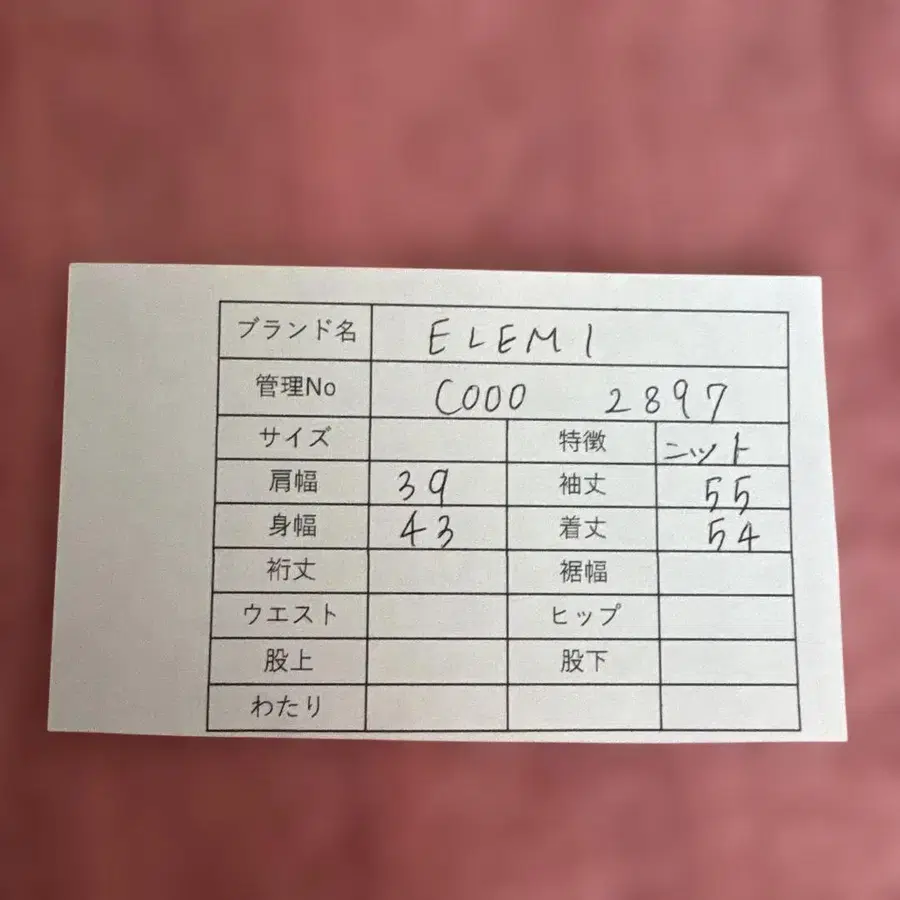 ブランド名 ELEMI
管理No C000 2897
サイズ 特徴 ニット
肩幅 39 袖丈 55
身幅 43 着丈 54
裄丈 裾幅
ウエスト ヒップ
股上 股下
わたり